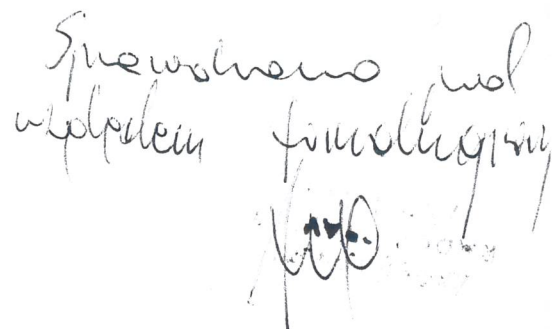 Sprawdzono pod
względem formalnym